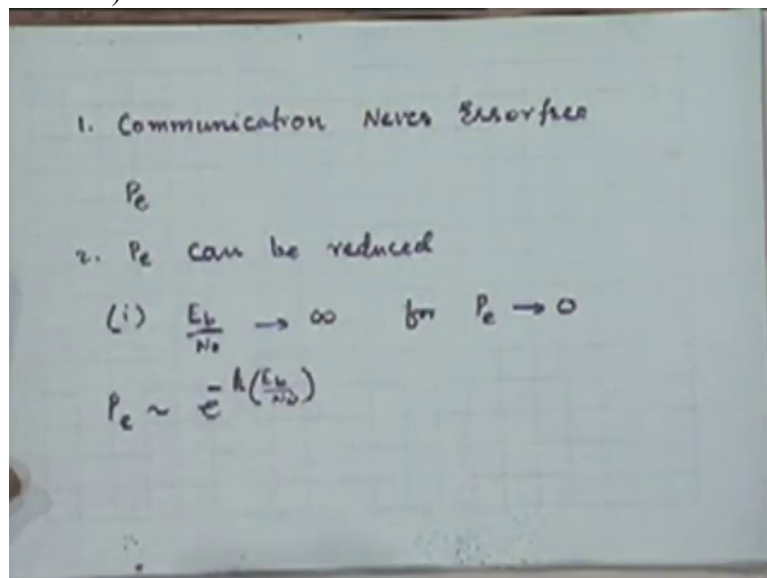 1. Communication Never Errorfree
Pe
2. Pe can be reduced
(i) Eb/N0 → ∞ for Pe → 0
Pe ~ e^-k(Eb/N0)